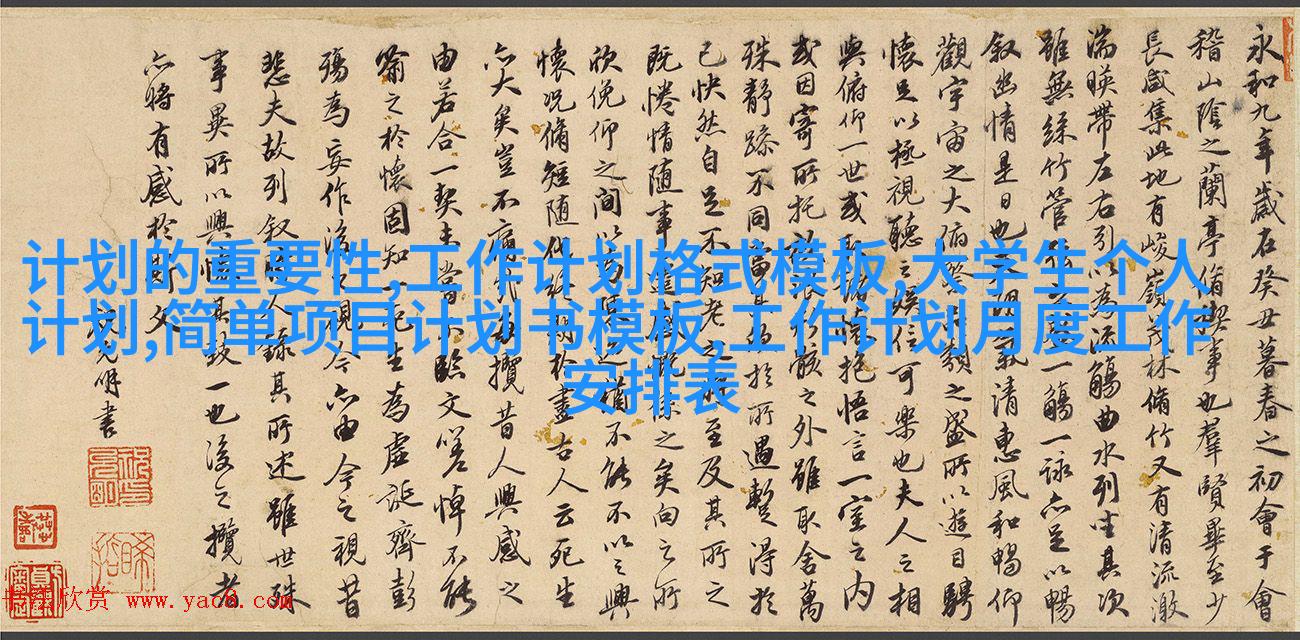 计划的重要性,工作计划格式模板,大学生个人
计划,简单项目计划书模板,工作计划月度工作
安排表
永和九年歲在癸丑暮春之初會于會
稽山陰之蘭亭脩禊事也羣賢畢至少
長咸集此地有峻嶺茂林脩竹又有清流激
湍暎帶左右引以為流觴曲水列坐其次
雖無絲竹管一觴一詠亦足以暢
叙幽情是日也天朗氣清惠風和暢仰
觀宇宙之大俯察品類之盛所以遊目騁
懷足以極視聽之娛信可樂也夫人之相
與俯仰一世或取諸懷抱悟言一室之內
或因寄所托放浪形骸之外雖取舍萬
殊靜躁不同當其於所遇暫得於
己快然自足不知老之將至及其所之
既惓情随事遷係之矣向之所
欣俛仰之間以為迹猶不能不以之興
懷况脩短随化終期於盡古人云死生
亦大矣豈不痛哉每攬昔人興感之
由若合一契未嘗不臨文嗟悼不能
喻之於懷固知一死生為虛誕齊彭
殤為妄作後之視今亦由今之視昔
悲夫故列叙時人錄其所述雖世殊
事異所以興懷其致一也後之攬者
亦將有感於斯文
允明書
书法欣赏 www.yac8.com